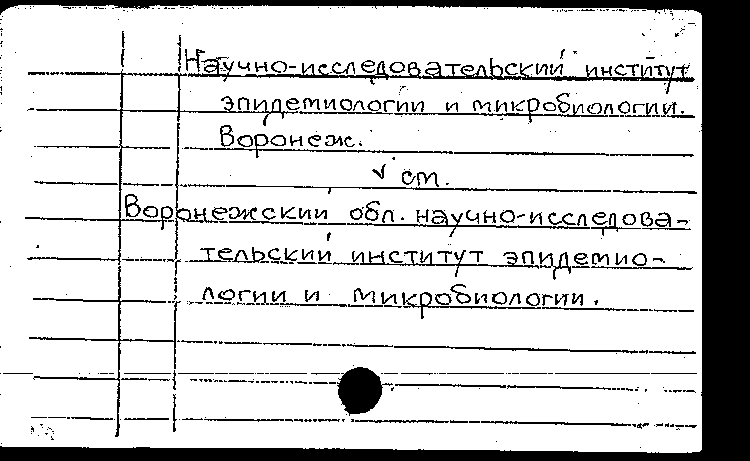 Научно-исследовательский институт
эпидемиологии и микробиологии.
Воронеж.
✓ см.
Воронежский обл. научно-исследова-
тельский институт эпидемио-
логии и микробиологии.